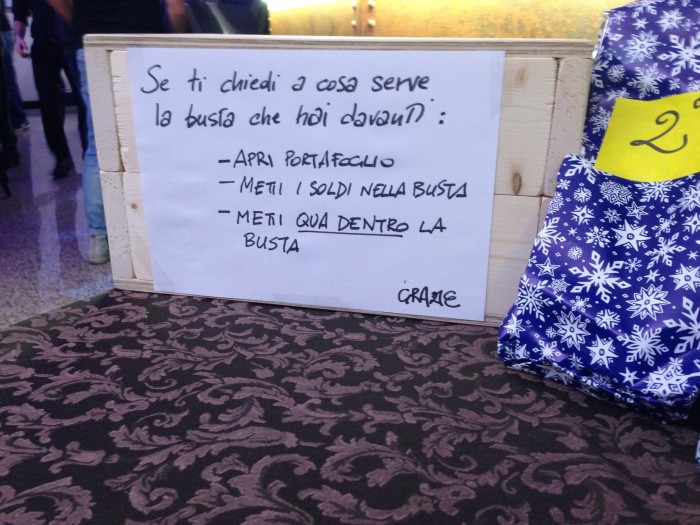 Se ti chiedi a cosa serve
la busta che hai davanti :
- APRI PORTAFOGLIO
- METTI I SOLDI NELLA BUSTA
- METTI QUA DENTRO LA
BUSTA
GRAZIE
2